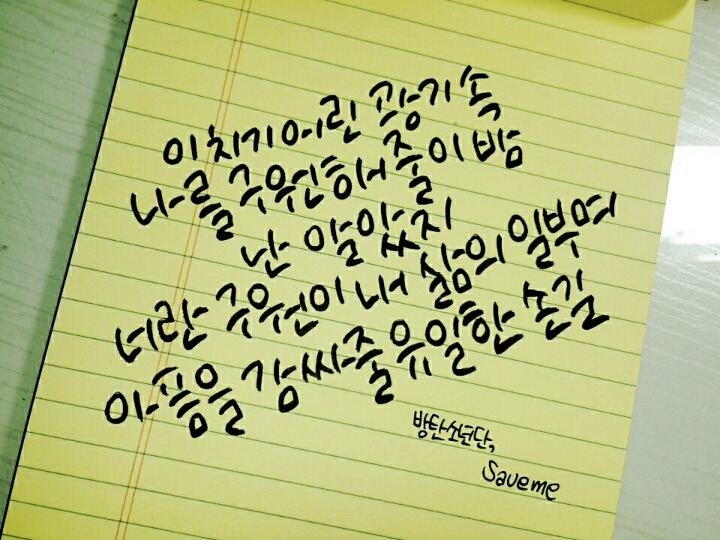 이 치기 어린 광기 속
나를 구원해 줄 이 밤
난 알았지
너란 구원이 내 삶의 일부며
아픔을 감싸줄 유일한 손길
방탄소년단,
Save me